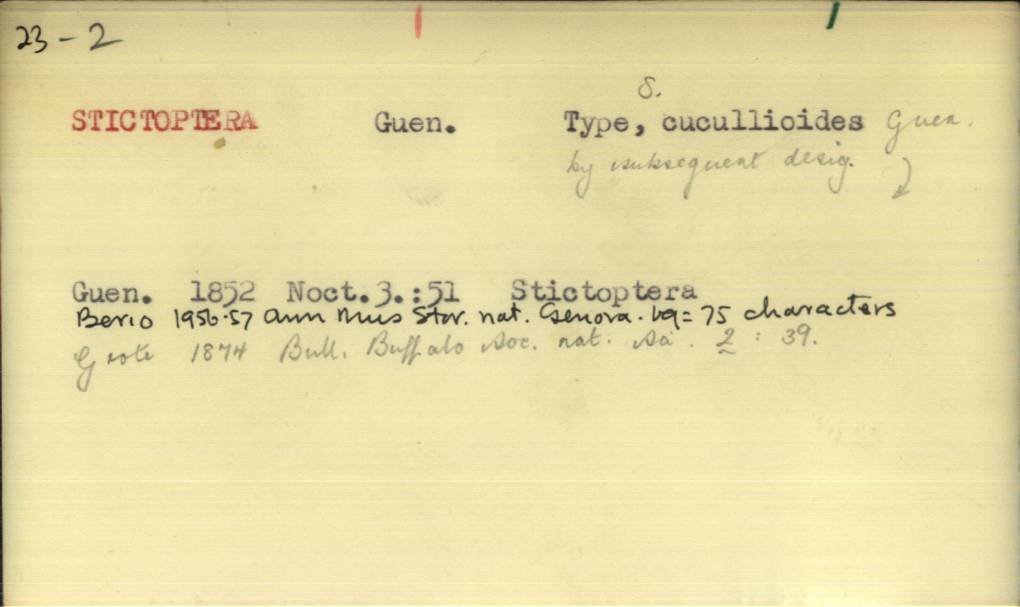 23-2
STICTOPTERA Guen. Type, S. cucullioides Guen.
by subsequent desig.
Guen. 1852 Noct.3.:51 Stictoptera
Berio 1956-57 Ann Mus Stor. nat. Genova. 69: 75 characters
Grote 1874 Bull. Buffalo Soc. nat. Sci. 2 : 39.